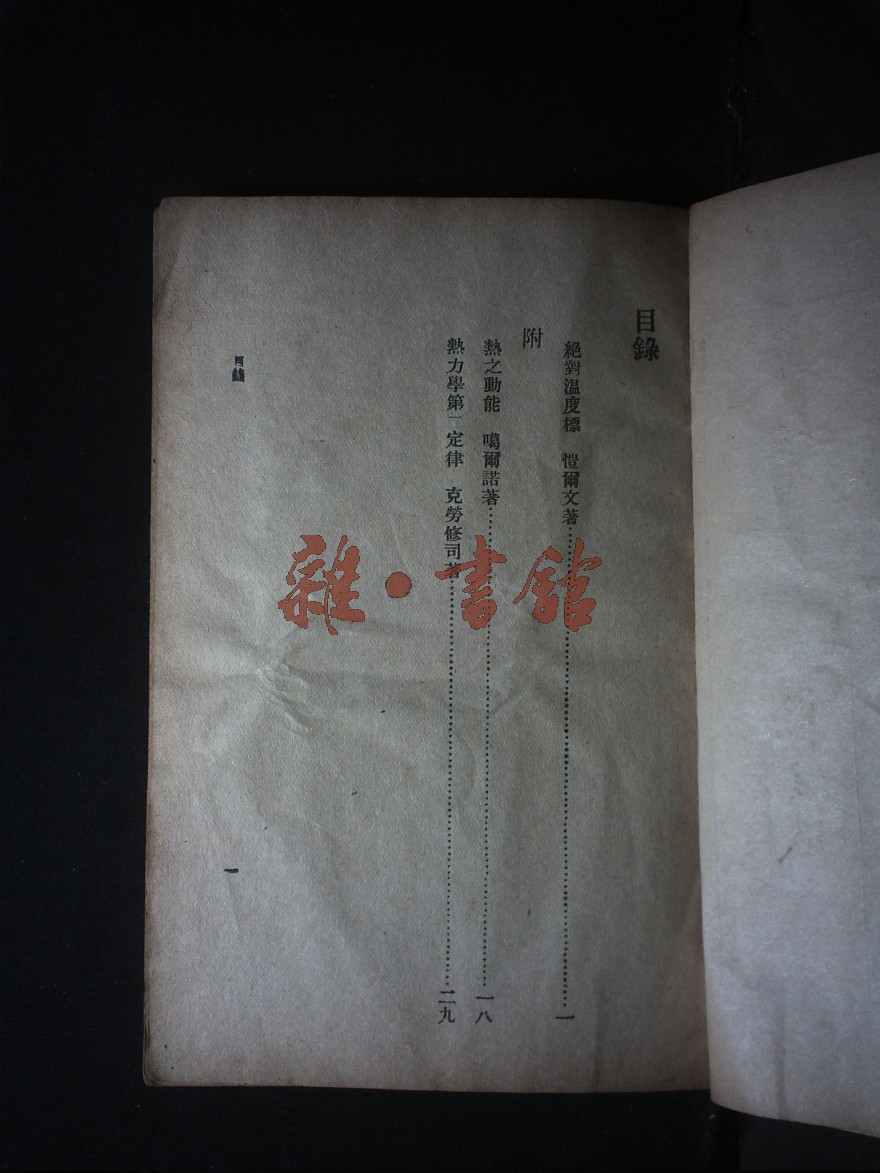 目錄
絕對溫度標　愷爾文著……一
附
熱之動能　噶爾諾著……一八
熱力學第一定律　克勞修司著……二九
目錄
一
雜·書館